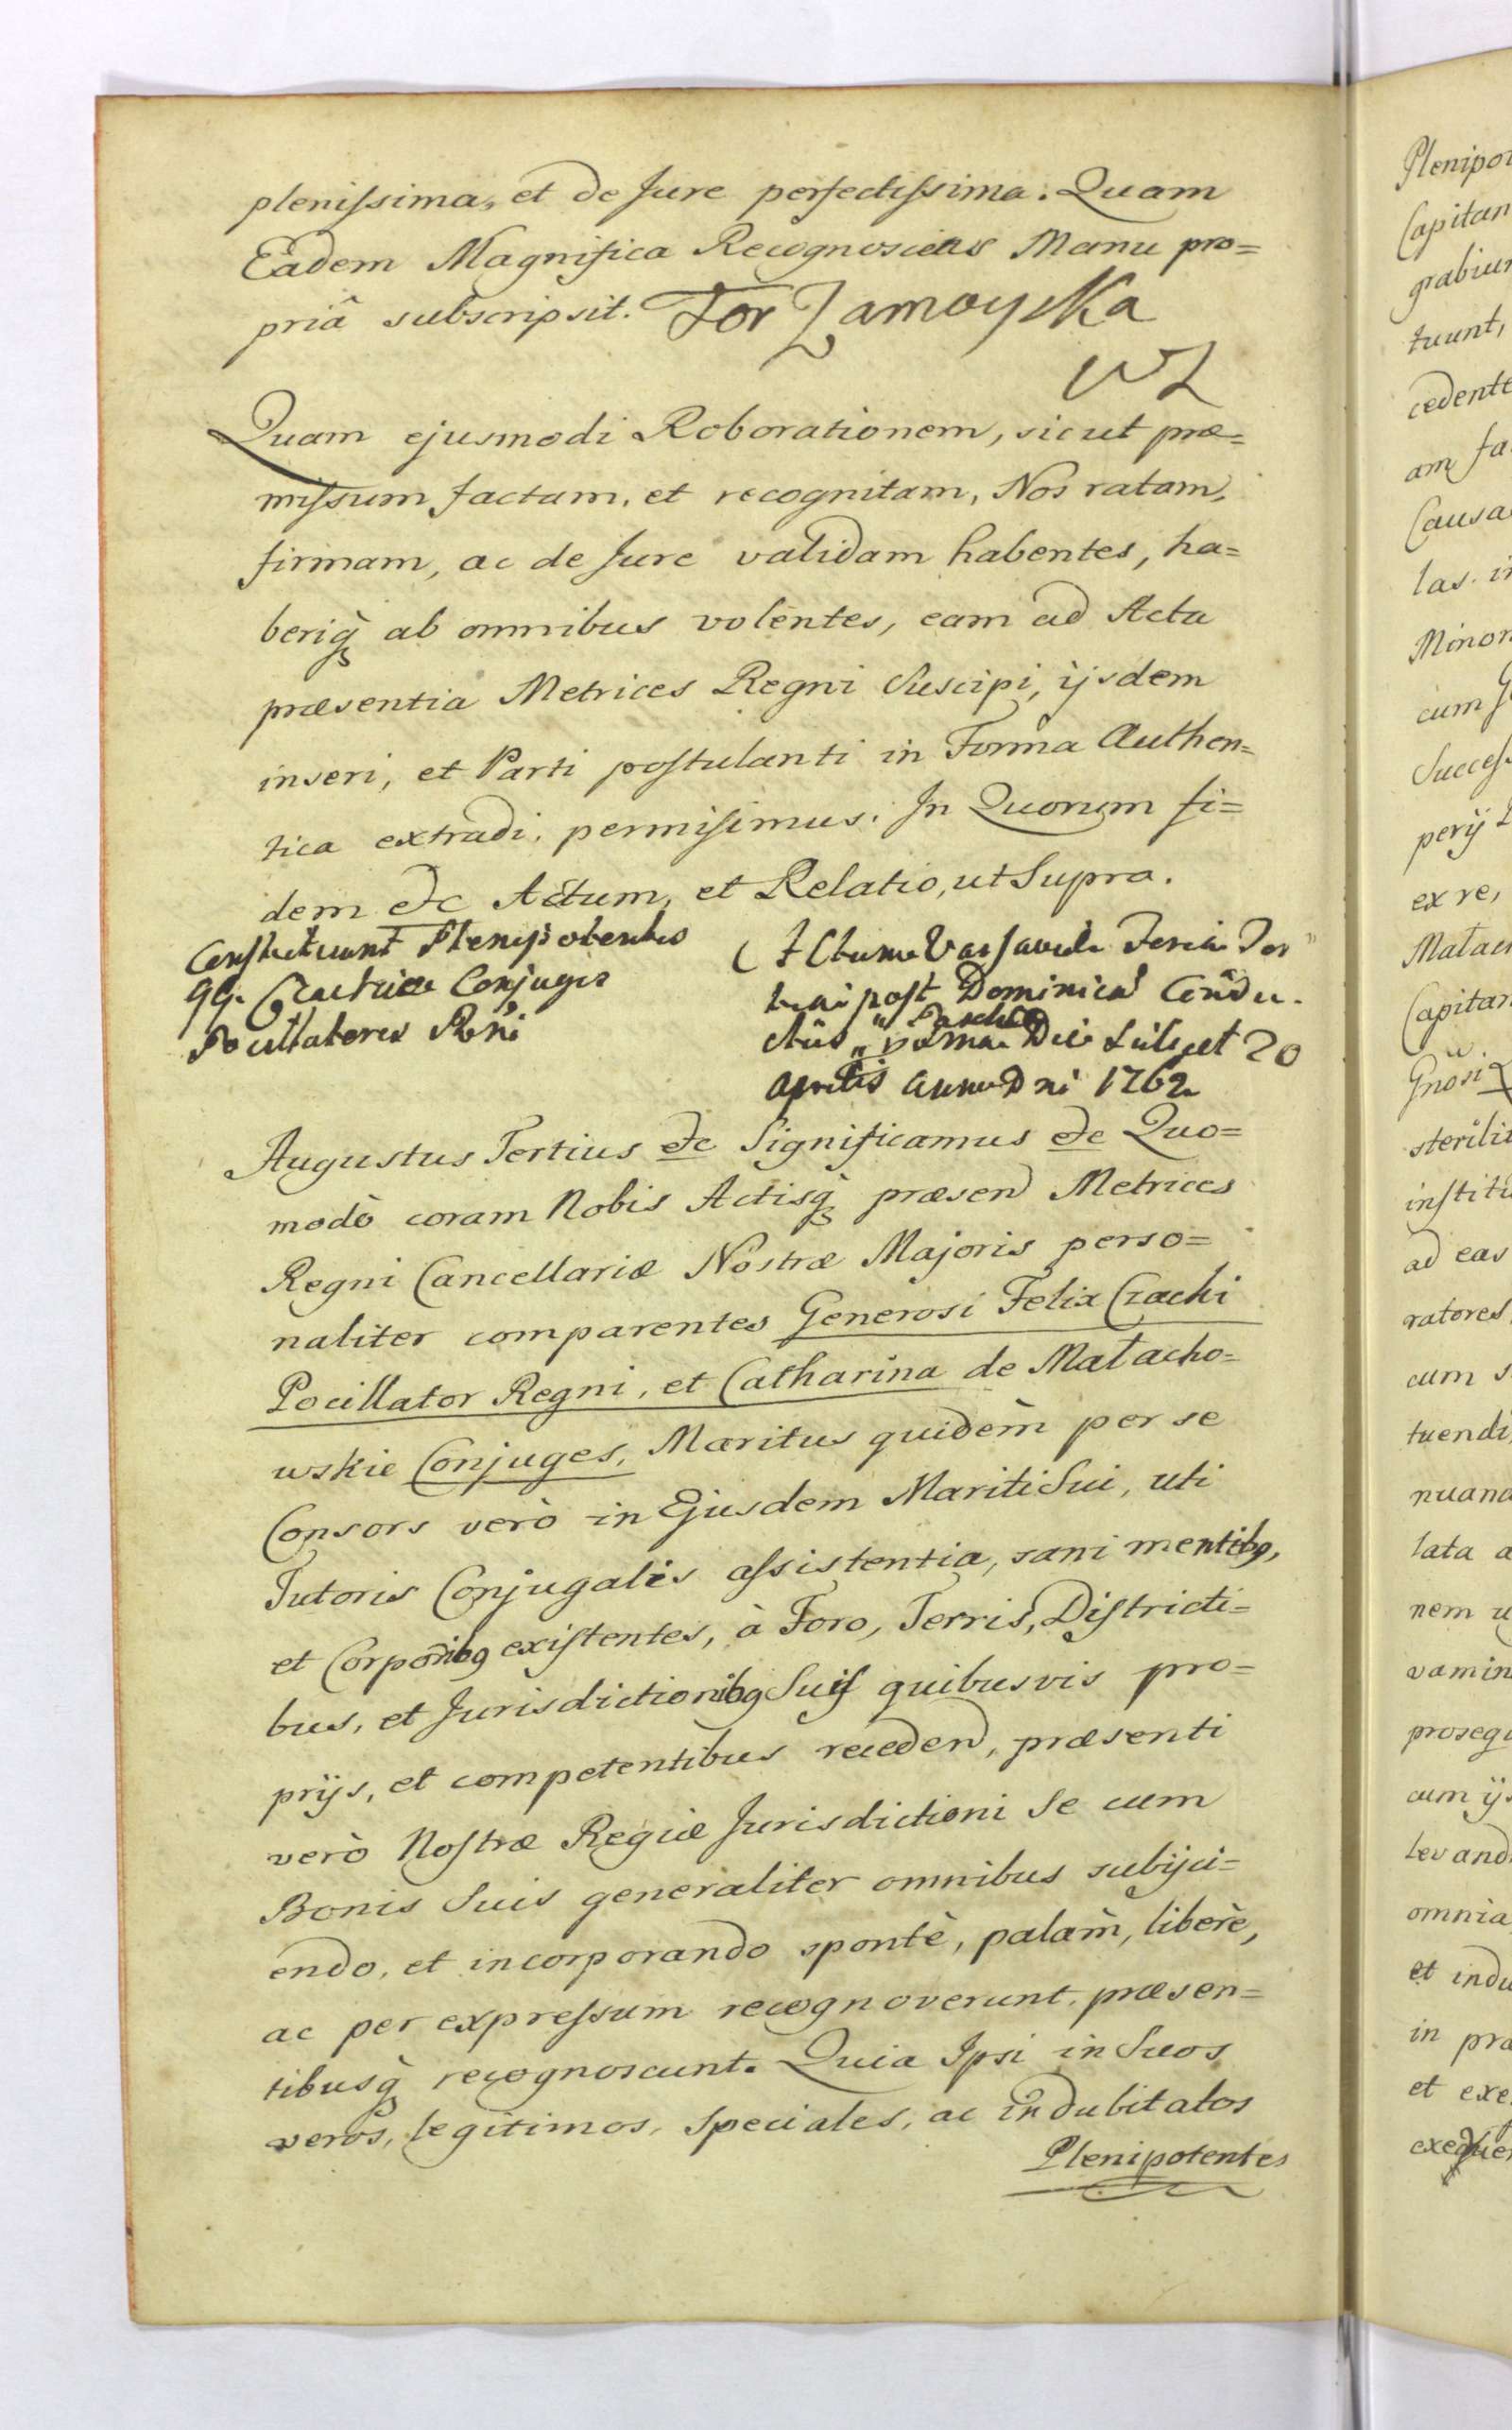 plenissima, et de Jure perfectissima. Quam
Eadem Magnifica Recognoscens Manu pro=
priâ subscripsit. Tor Zamoyska
WL
Quam ejusmodi Roborationem, sicut præ=
missum factam, et recognitam, Nos ratam,
firmam, ac de Jure validam habentes, ha=
beriq̀ ab omnibus volentes, eam ad Acta
præsentia Metrices Regni Suscipi, ijsdem
inseri, et Parti postulanti in Forma Authen=
tica extradi, permisimus. In Quorum fi=
dem etc Actum, et Relatio, ut Supra.
Constituunt Plenipotentes
GG. Czackie Conjuges
Pocillatores Rni
Actum Varsaviæ Feria Ter
tia post Dominicā Condu
ctus Paschæ Die Scilicet 20
Aprilis Anno Dni 1762
Augustus Tertius etc Significamus etc Quo=
modò coram Nobis Actisq̀ præsen Metrices
Regni Cancellariæ Nostræ Majoris perso=
naliter comparentes Generosi Felix Czacki
Pocillator Regni, et Catharina de Małacho=
wskie Conjuges, Maritus quidèm per se
Consors verò in Ejusdem Mariti Sui, uti
Tutoris Conjugalis assistentia, sani mentibq,
et Corporibq existentes, à Foro, Terris, Districti=
bus, et Jurisdictionibq Suis quibusvis pro=
prijs, et competentibus receden, præsenti
verò Nostræ Regiæ Jurisdictioni Se cum
Bonis Suis generaliter omnibus subijci=
endo, et incorporando spontè, palàm, liberè,
ac per expressum recognoverunt, præsen=
tibusq̀ recognoscunt. Quia Ipsi in Suos
veros, legitimos, Speciales, ac indubitatos
Plenipotentes
Capitan
tuunt,
cedente
am fa
Causa
las. in
Minor
cum G
Success
perij
ex re,
Małach
Capitan
Gnosi
sterilit
institu
ad eas
ratores
cum s
tuendi
nuand
lata a
nem u
vamin
prosequ
cum ijs
levand
omnia
et indu
in pra
et exe